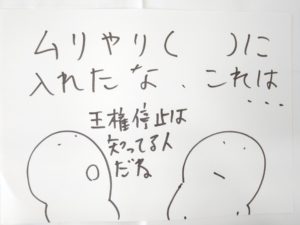 ムリやり(　　)に
入れたな、これは
...
王権停止は
知ってる人
だね